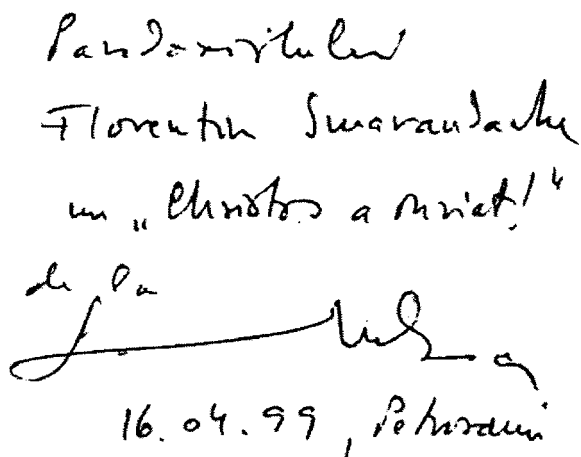 Paradoxistului
Florentin Smarandache
un „Christos a înviat!"
de la
16.04.99, Petroșani